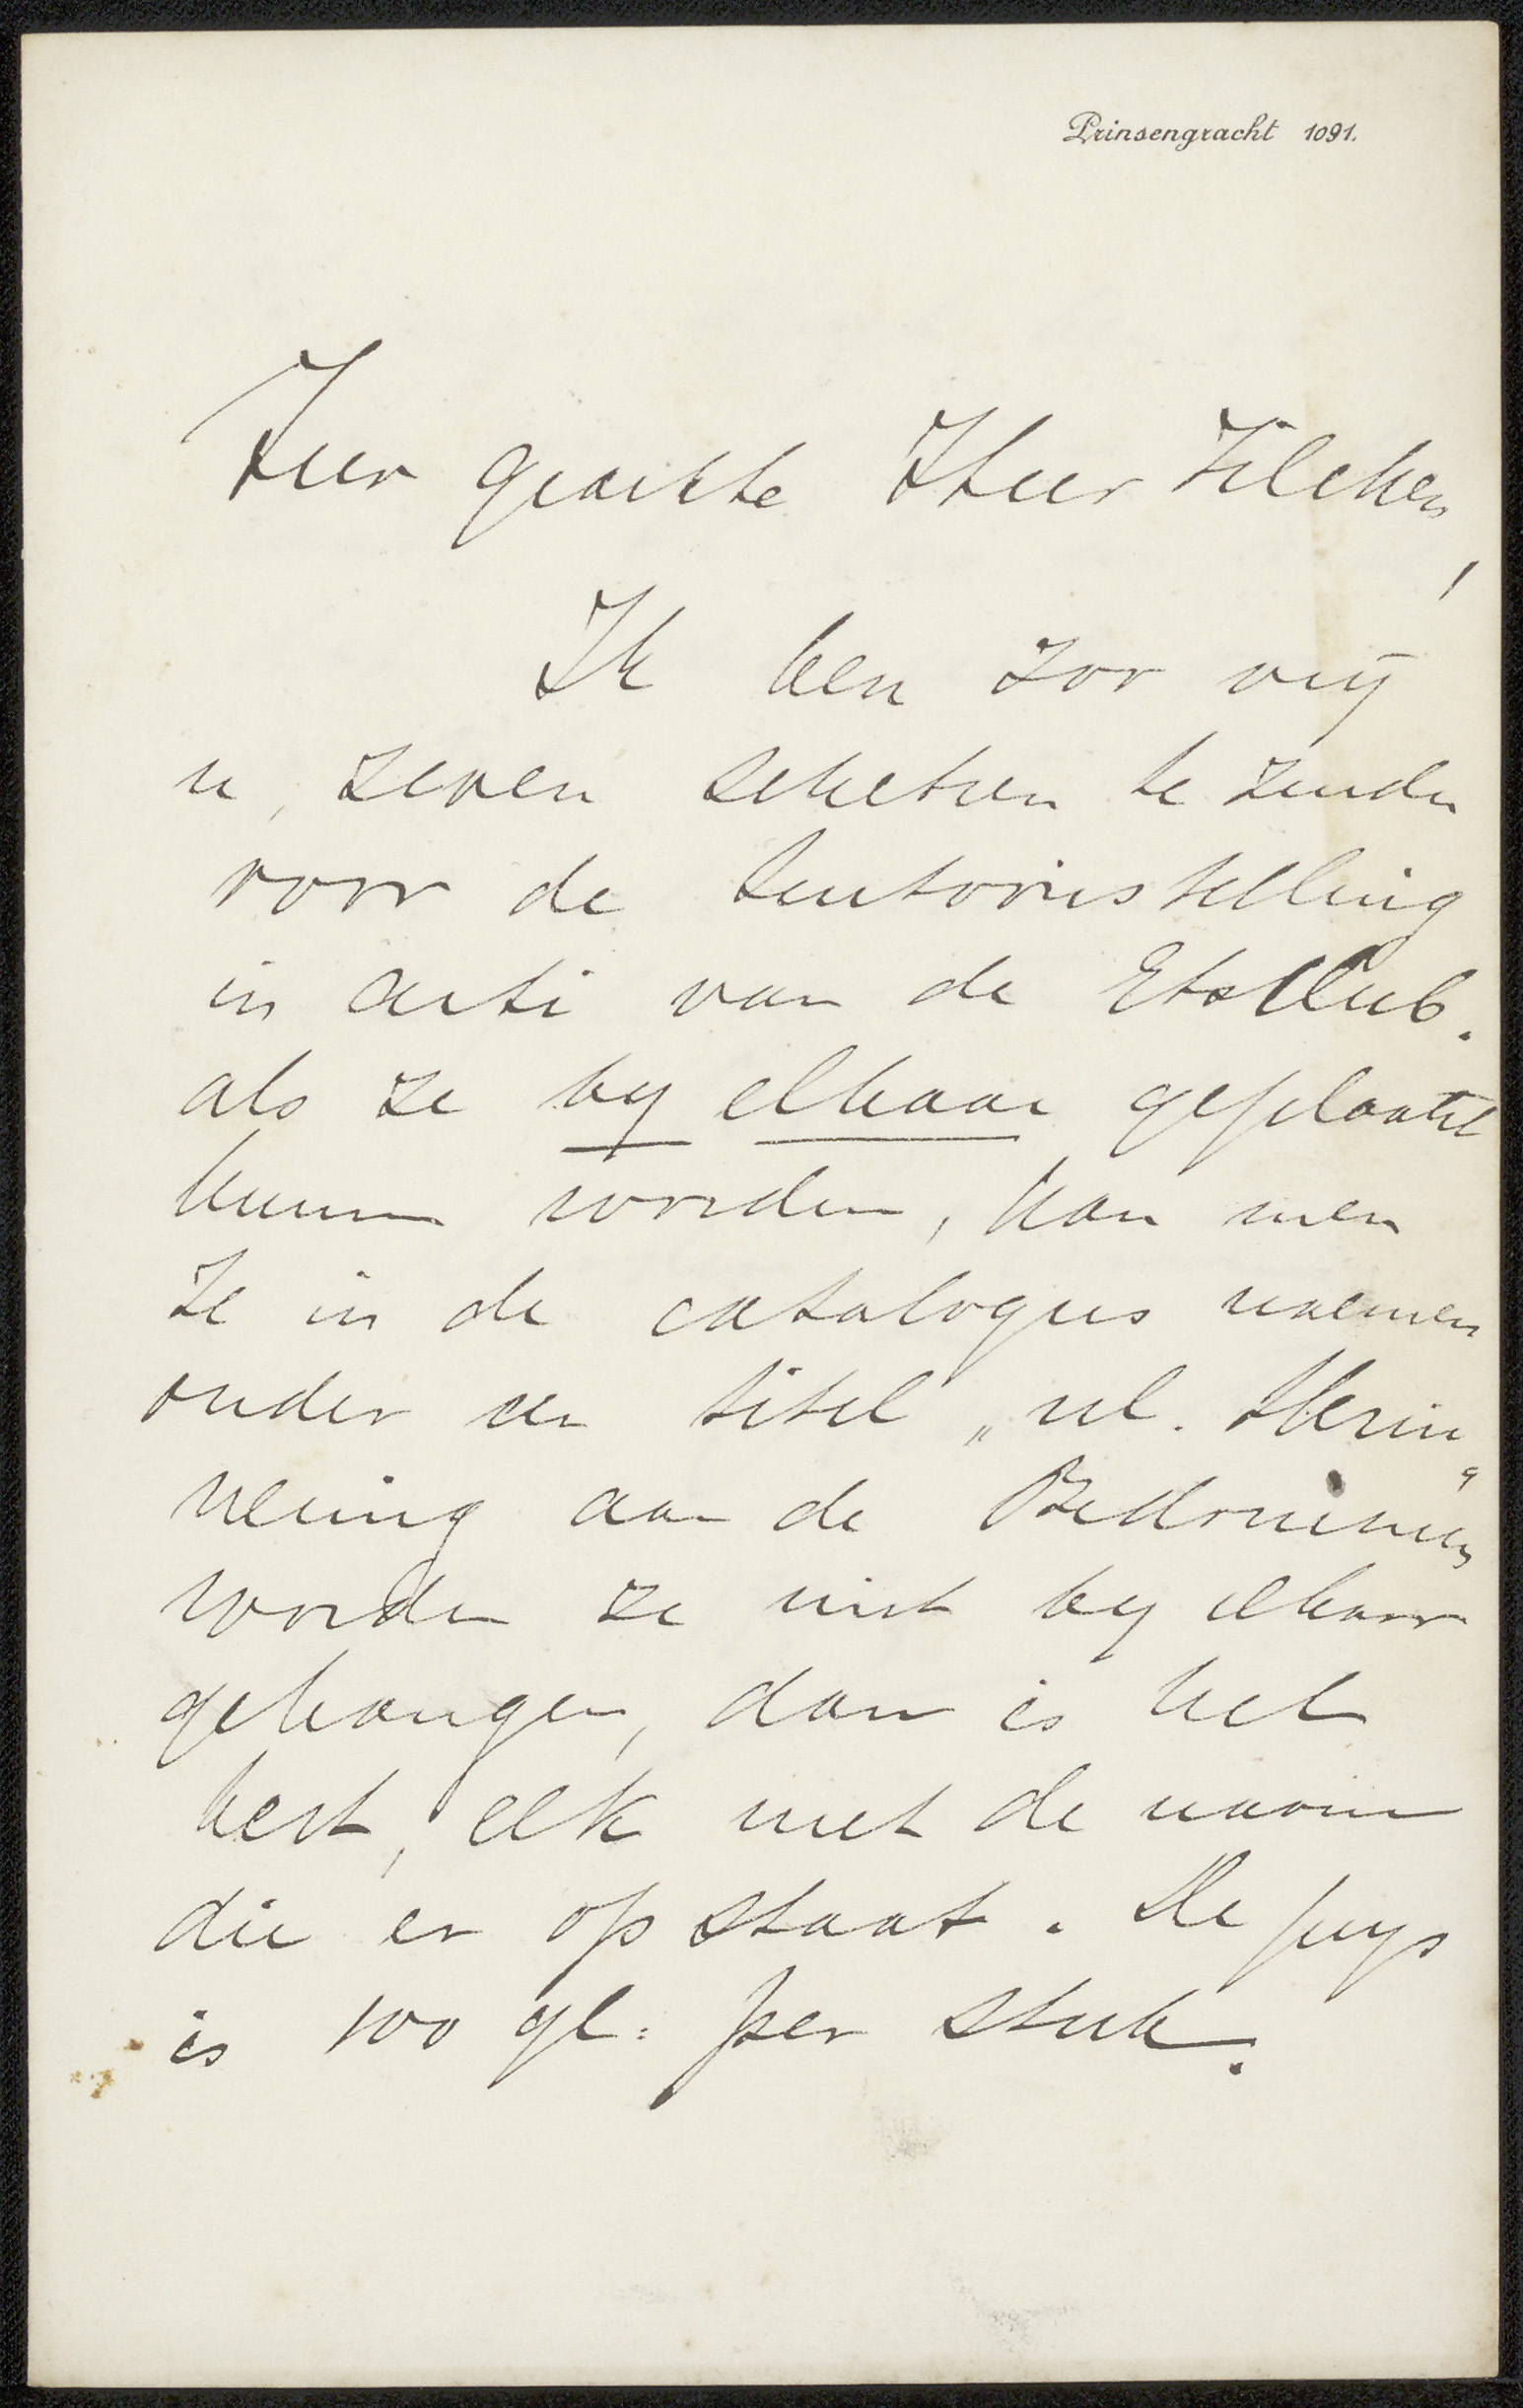 Prinsengracht 1091.
Zeer geachte Heer Zilcken,
Ik ben zoo vrij
u, zeven schetsen te zenden
voor de tentoonstelling
in Arti van de Etsclub.
als ze by elkaar geplaatst
kunnen worden, kan men
ze in de catalogus noemen
onder een titel „nl. Herin„
nering aan de
worden ze niet by elkaar
gehangen, dan is het
best, elk met de naam
die er op staat. De prys
is 100 gl: per stuk.